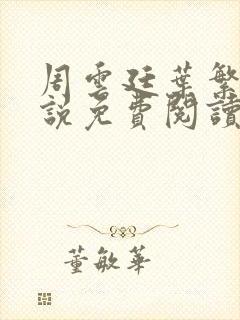 周雲廷葉繁
説免費閱讀
董敏華